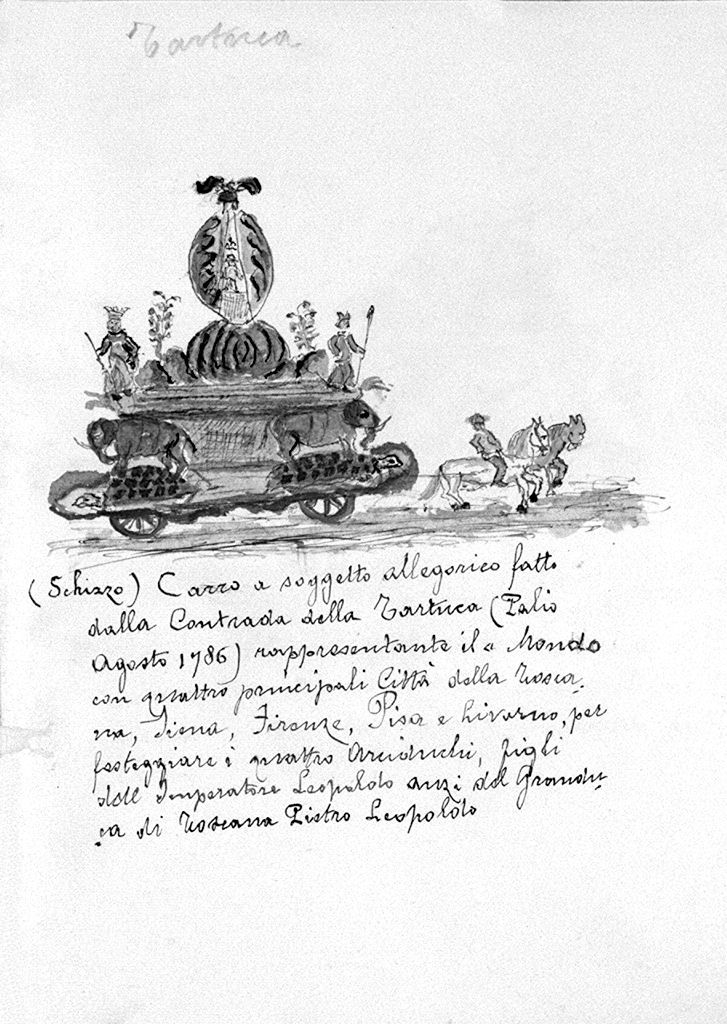 Tartuca
(Schizzo) Carro a soggetto allegorico fatto
dalla Contrada della Tartuca (Palio
Agosto 1786) rappresentante il Mondo
con quattro principali Città della Tosca
na, Siena, Firenze, Pisa e Livorno, per
festeggiare i quattro Arciduchi, figli
dell Imperatore Leopoldo anzi del Grandu-
ca di Toscana Pietro Leopoldo